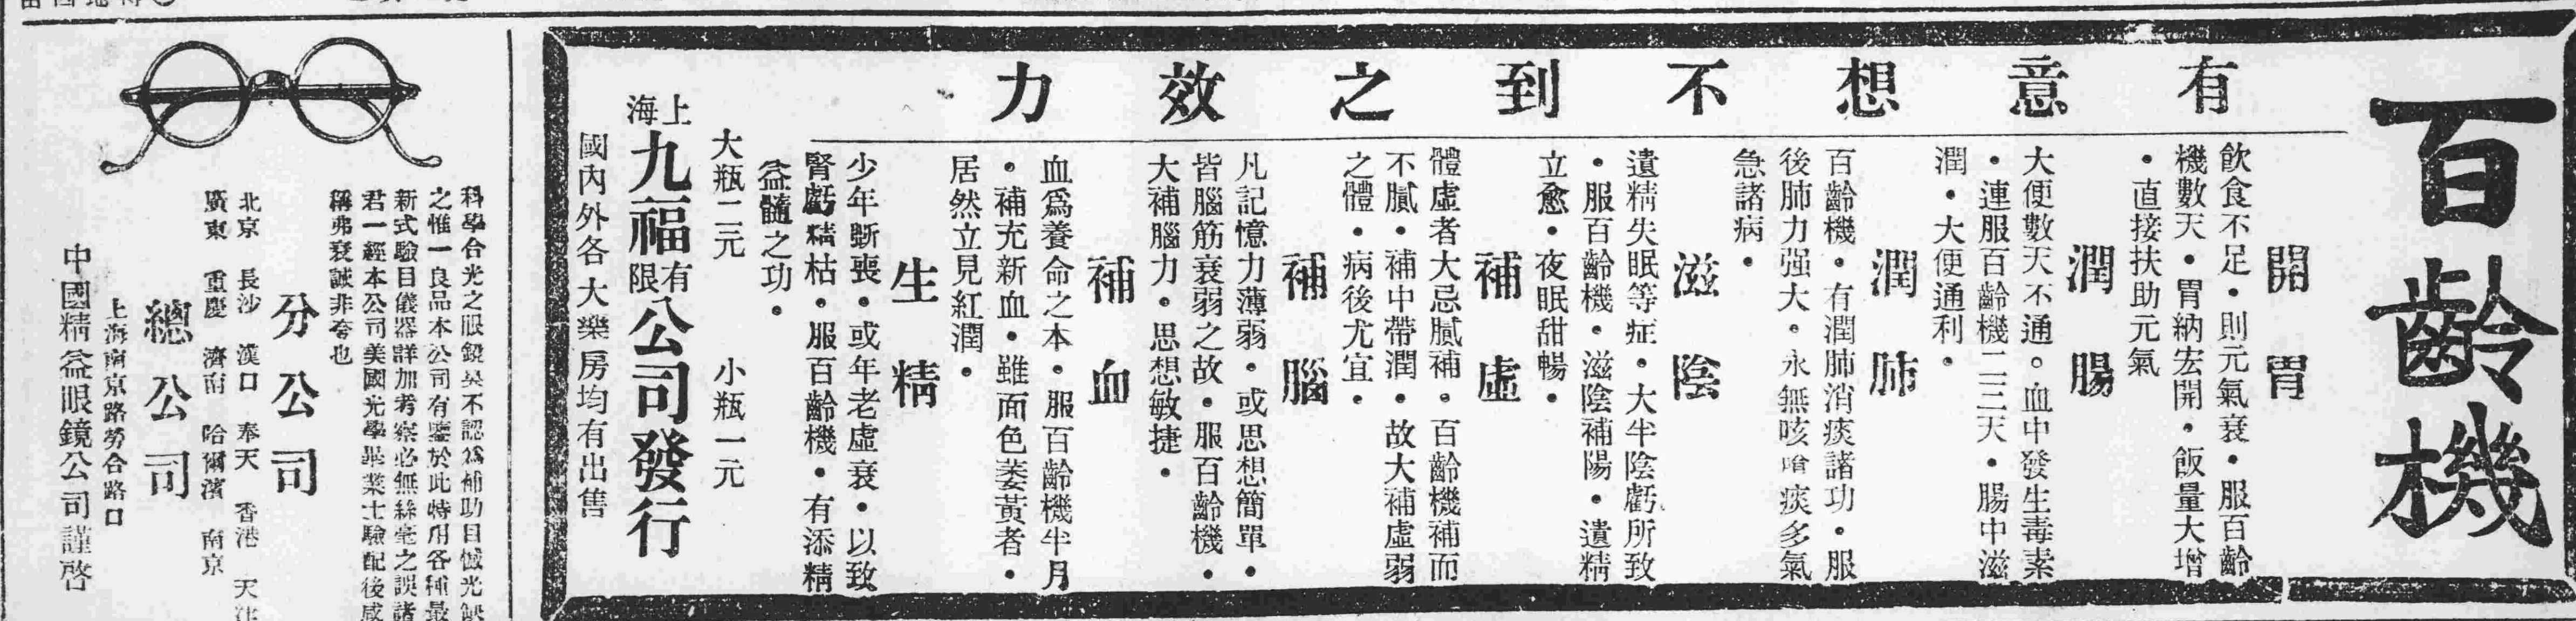 百齡機
有意想不到之效力
開胃
飲食不足・則元氣衰・服百齡
機數天・胃納宏開・飯量大增
・直接扶助元氣
潤腸
大便數天不通。血中發生毒素
・連服百齡機二三天・腸中滋
潤・大便通利・
潤肺
百齡機・有潤肺消痰諸功・服
後肺力强大・永無咳嗆痰多氣
急諸病・
滋陰
遺精失眠等症・大半陰虧所致
・服百齡機・滋陰補陽・遺精
立愈・夜眠甜暢・
補虛
體虛者大忌膩補・百齡機補而
不膩・補中帶潤・故大補虛弱
之體・病後尤宜・
補腦
凡記憶力薄弱・或思想簡單・
皆腦筋衰弱之故・服百齡機・
大補腦力・思想敏捷・
補血
血爲養命之本・服百齡機半月
・補充新血・雖面色萎黃者・
居然立見紅潤・
生精
少年斲喪・或年老虛衰・以致
腎虧精枯・服百齡機・有添精
益髓之功・
大瓶二元 小瓶一元
上海九福有限公司發行
國內外各大藥房均有出售
科學合光之眼鏡莫不認爲補助目力光
之惟一良品本公司有鑒於此特用各種最
新式驗目儀器詳加考察必無絲毫之誤諸
君一經本公司美國光學畢業士驗配後感
稱弗衰誠非夸也
分公司
北京 長沙 漢口 奉天 香港 天
廣東 重慶 濟南 哈爾濱 南京
總公司
上海南京路勞合路口
中國精益眼鏡公司謹啓